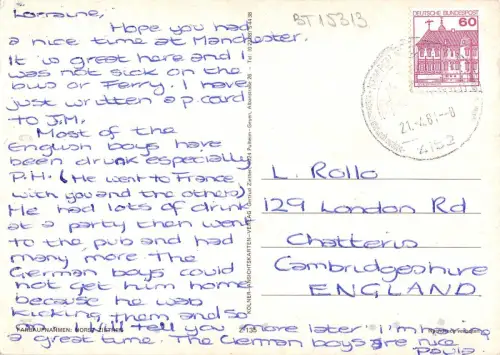 Lorraine,
Hope you had
a nice time at Manchester.
It is great here and I
was not sick on the
bus or Ferry. I have
just written a p.card
to J.M.
Most of the
English boys have
been drunk especially
P.H. (He went to France
with you and the others)
He had lots of drink
at a party then went
to the pub and had
many more The
German boys could
not get him home
because he was
kicking them and so
I'll tell you more later I'm having
a great time. The German boys are nice
Paula.
BT15313
DEUTSCHE BUNDESPOST
60
L. Rollo
129 London Rd
Chatteris
Cambridgeshire
ENGLAND
FARBAUFNAHMEN: HORST ZIETHEN